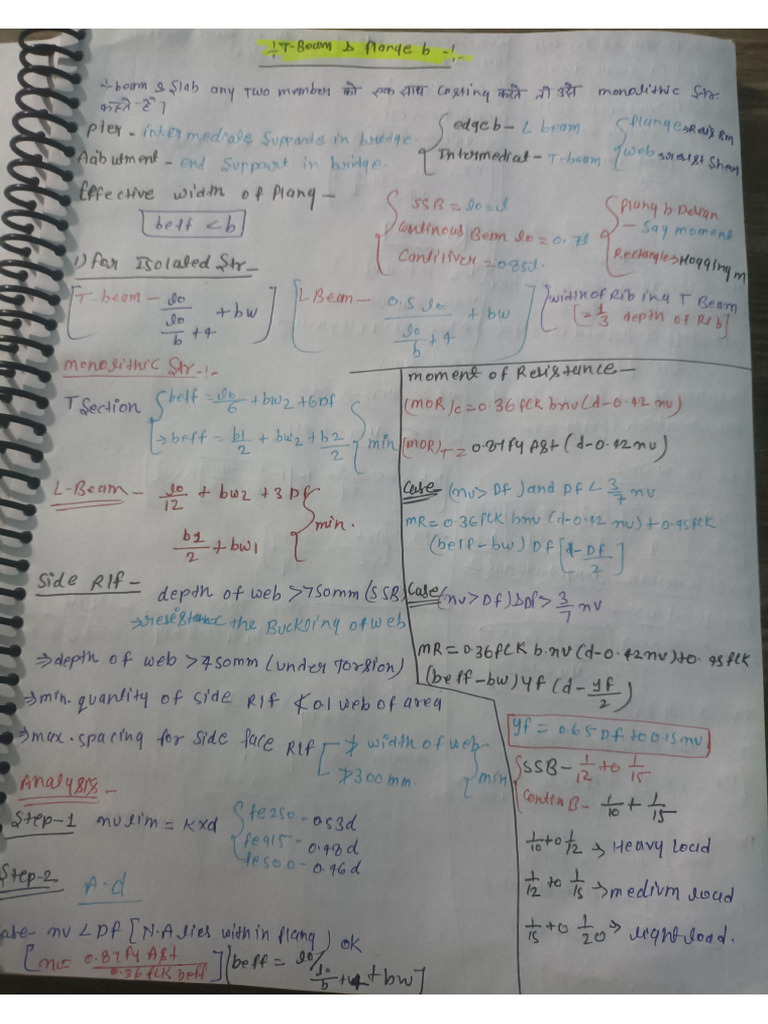 T-Beam & flange b -
beam & slab any two member को एक साथ casting करते तो उसे monolithic Str.
कहते हैं।
Pier - intermediate supports in bridge.
Aabutment - end support in bridge.
edge b - L beam
Intermedial - T-beam
flange → Resis Bm
web → resist Shear
Effective width of flang -
beff < b
SSB = lo = l
Continous Beam lo = 0.7l
Cantiliver =
flang b.
- Say moment
Rectangle → Hogging m
1) for Isolated Str -
[T-beam - lo / (lo/b + 4) + bw]
[L Beam - 0.5 lo / (lo/b + 4) + bw]
width of Rib in a T Beam
[= 1/3 depth of Rib]
monolithic Str -:-
T Section { beff = lo/6 + bw2 + 6Df
→ beff = b1/2 + bw2 + b2/2 } min
L-Beam - lo/12 + bw2 + 3 Df
b1/2 + bw1 } min.
Side R/f - depth of web > 750mm (SSB)
→ resistance the Buckding of web
⇒ depth of web > 450mm (under torsion)
⇒ min. quantity of side R/f ≮ 0.1 web of area
⇒ max. spacing for side face R/f [ ≯ width of web.
≯ 300mm. } min
Analysis -
Step-1 nulim = kxd { fe250 - 053d
fe415 - 0.48d
fe500 - 0.46d
Step-2 A.d
Case - nu < Df [N.A lies within flang) ok
[nu = 0.87 fy Ast / 0.36 fck beff] [beff = lo / (lo/b + 4) + bw]
moment of Resistance -
(MOR)c = 0.36 fck b nu (d - 0.42 nu)
(MOR)T = 0.87 fy Ast (d - 0.42 nu)
Case (nu > Df) and Df < 3/7 nu
MR = 0.36 fck b nu (d - 0.42 nu) + 0.45 fck
(beff - bw) Df [d - Df/2]
Case (nu > Df) & Df > 3/7 nu
MR = 0.36 fck b. nu (d - 0.42 nu) + 0.45 fck
(beff - bw) yf (d - yf/2)
yf = 0.65 Df + 0.15 nu
SSB - 1/12 to 1/15
Contin B - 1/10 + 1/15
1/10 to 1/12 → Heavy load
1/12 to 1/15 → medium load
1/15 to 1/20 → light load.